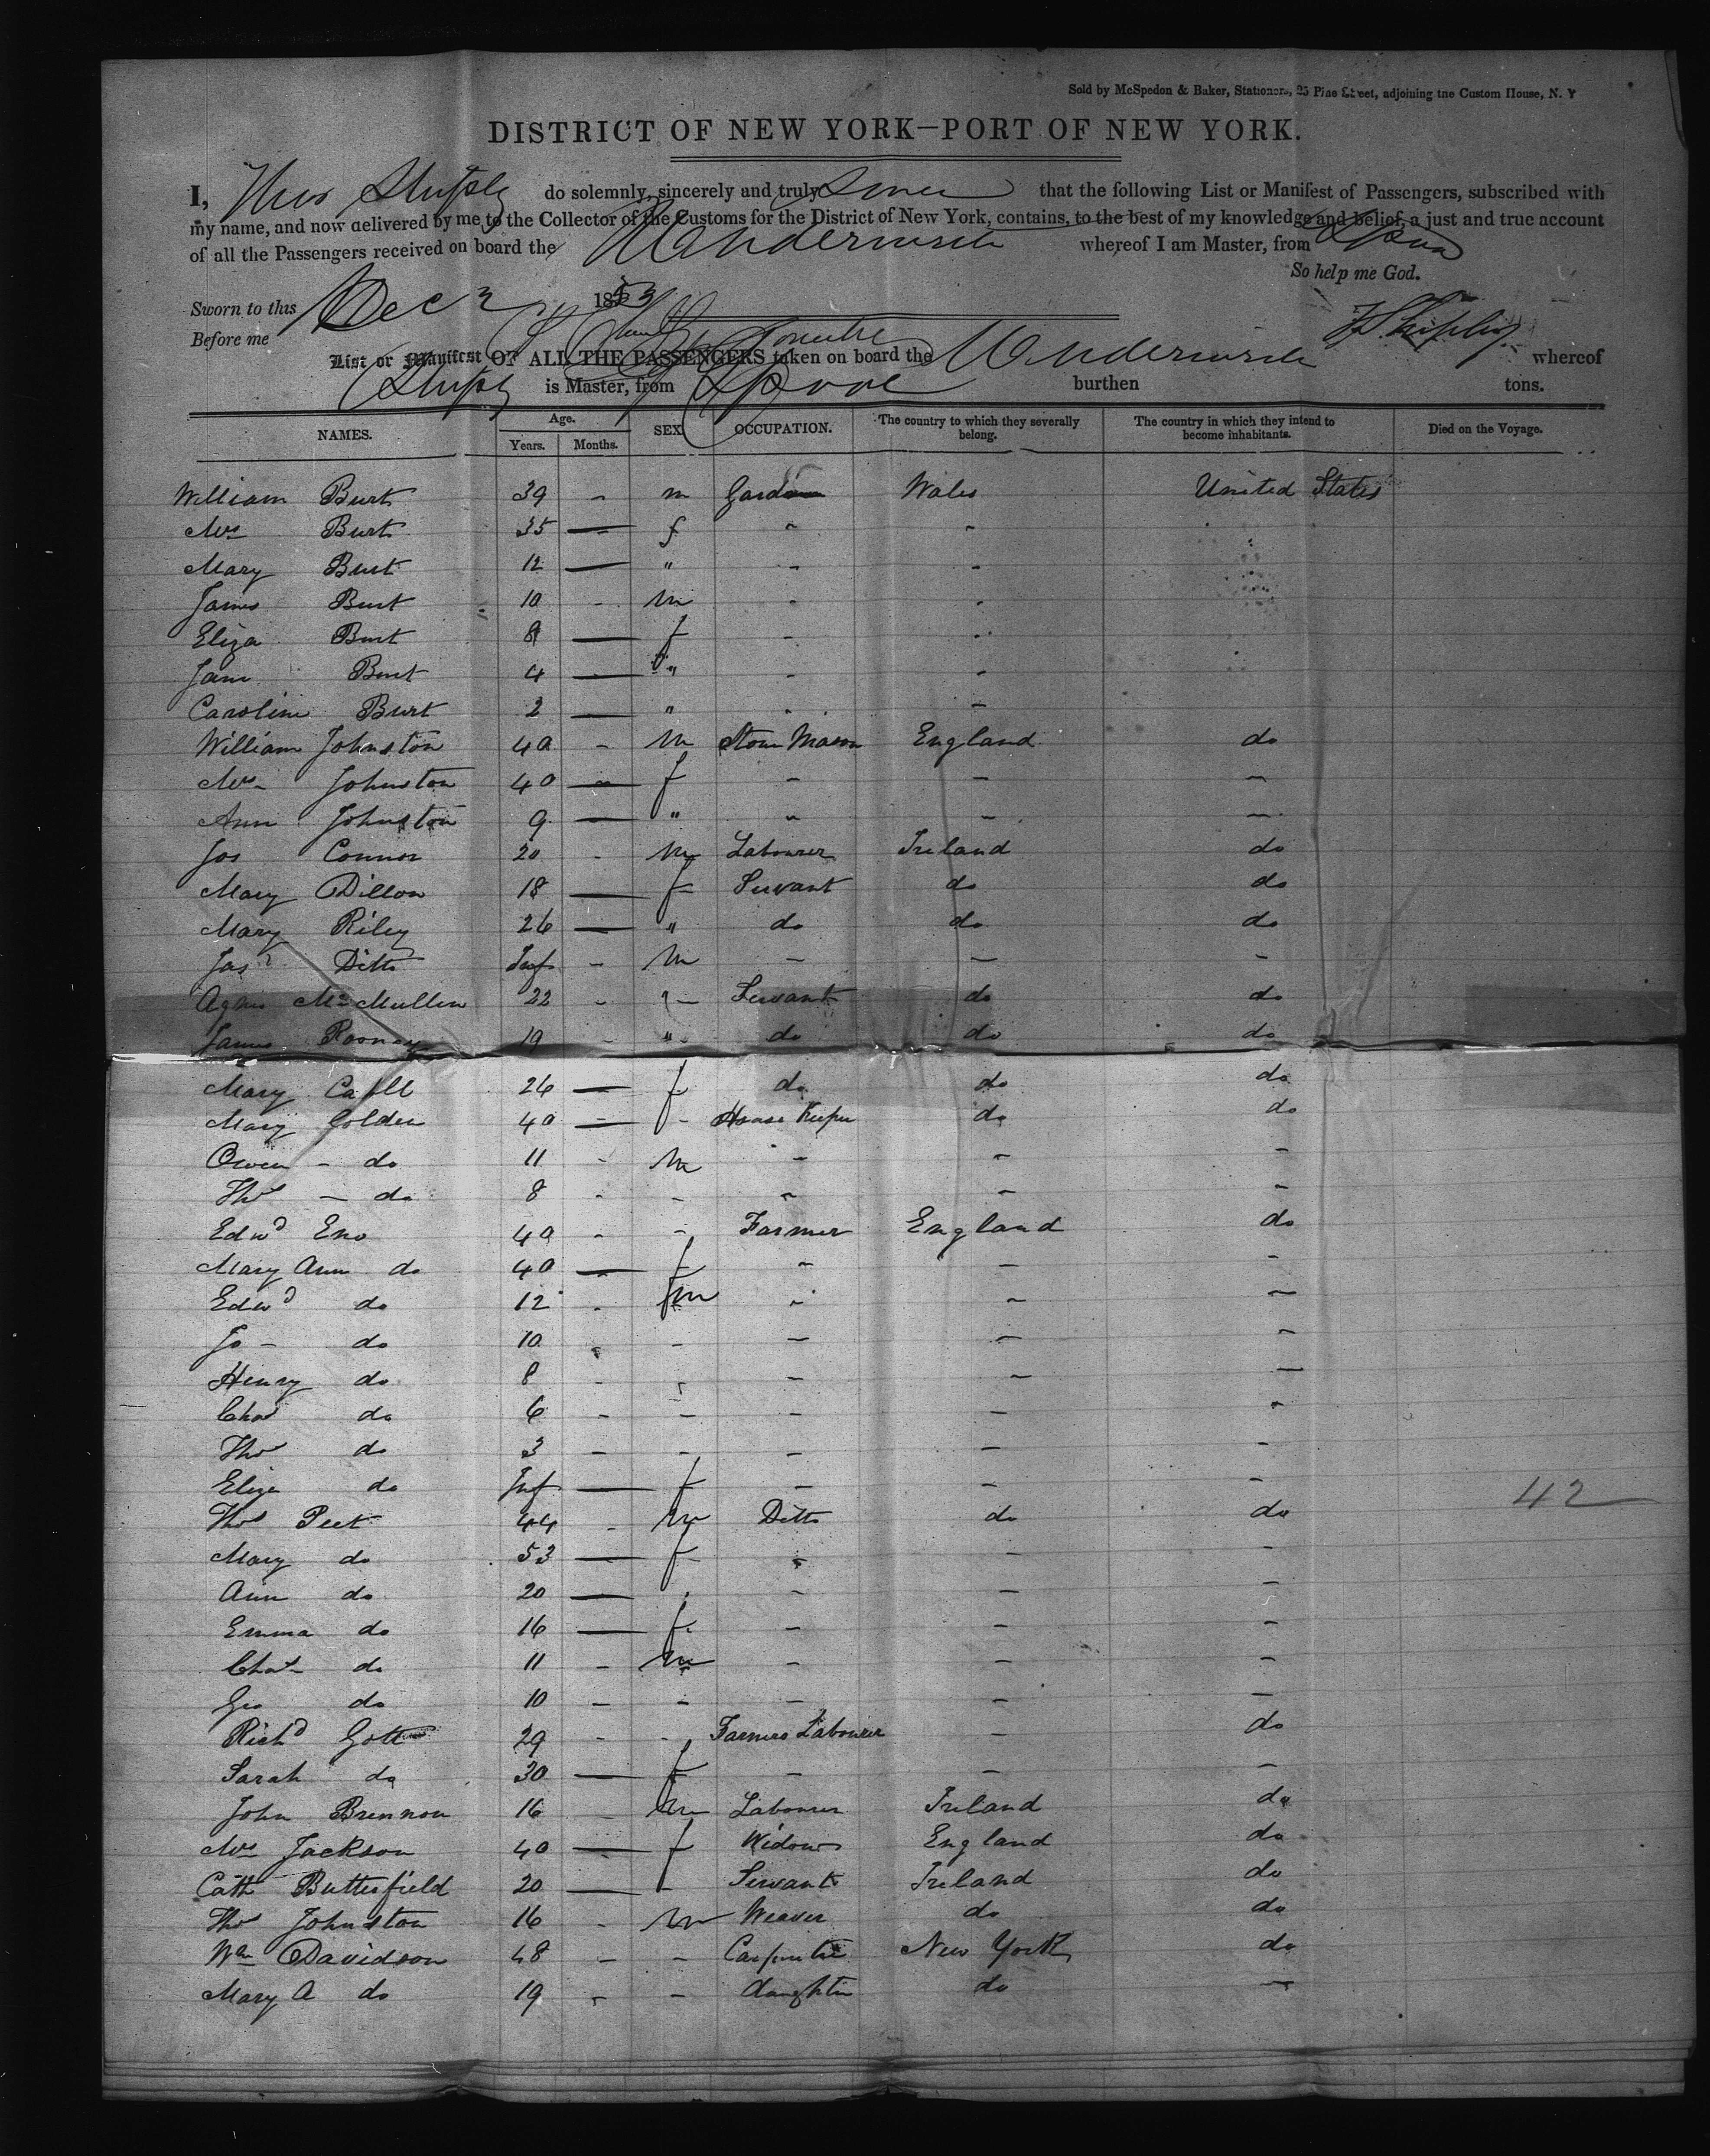 Sold by McSpedon & Baker, Stationers, 25 Pine Street, adjoining the Custom House, N. Y
DISTRICT OF NEW YORK—PORT OF NEW YORK.
I, Thos Shipley do solemnly, sincerely and truly swear that the following List or Manifest of Passengers, subscribed with
my name, and now delivered by me to the Collector of the Customs for the District of New York, contains, to the best of my knowledge and belief, a just and true account
of all the Passengers received on board the whereof I am Master, from Lpool
So help me God.
Sworn to this Dec 2 1853
Before me T Shipley
List or Manifest OF ALL THE PASSENGERS taken on board the whereof
Shipley is Master, from Lpool burthen tons.
NAMES. Age. Years. Months. SEX. OCCUPATION. The country to which they severally belong. The country in which they intend to become inhabitants. Died on the Voyage.
William Burt 39 - m Wales United States
Mrs Burt 35 — f " "
Mary Burt 12 — " - -
James Burt 10 - m - -
Eliza Burt 8 — f - -
Jane Burt 4 — " - -
Caroline Burt 2 — " - -
William Johnston 40 - m Stone Mason England do
Mrs Johnston 40 — f - - -
Ann Johnston 9 — " " - -
Jos Connor 20 - m Labourer Ireland do
Mary Dillon 18 — f Servant do do
Mary Riley 26 — " do do do
Jas Ditto Inf - m - - -
Agnes McMullen 22 - - Servant do do
James Rooney 19 - " do do do
Mary Cahll 26 — f do do do
Mary Golden 40 — - House Keeper do do
Owen - do 11 - m - - -
Thos - do 8 - - - - -
Edwd Eno 40 - - Farmer England do
Mary Ann do 40 — f - - -
Edwd do 12 - m - - -
Jo - do 10 - - - -
Henry do 8 - - - - -
Chas do 6 - - - - -
Thos do 3 - - - - -
Eliza do Inf — f - - -
42
Thos Peet 44 - m Ditto do do
Mary do 53 — f - - -
Ann do 20 — - - - -
Emma do 16 — f - - -
Chas do 11 - m - - -
Geo do 10 - - - - -
Richd Gott 29 - - Farmers Labourer - do
Sarah do 30 — f - - -
John Brennon 16 - m Labourer Ireland do
Mrs Jackson 40 — f Widow England do
Cath Butterfield 20 — Servant Ireland do
Thos Johnston 16 - m Weaver do do
Wm Davidson 48 - - Carpenter New York do
Mary A do 19 - - daughter do -